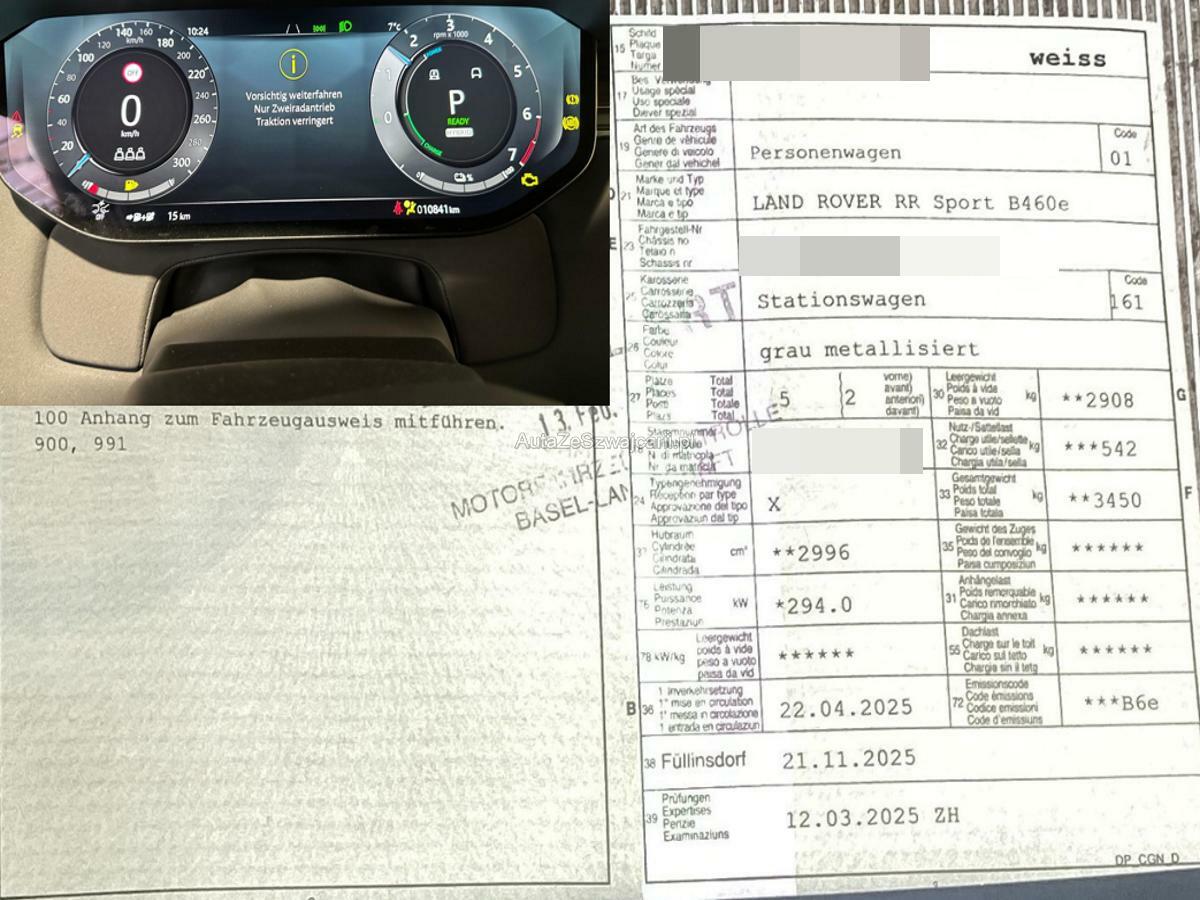 140
160
120
km/h
180
100
200
80
220
60
240
40
260
20
280
300
OFF
0
km/h
10:24
7°c
Vorsichtig weiterfahren
Nur Zweiradantrieb
Traktion verringert
3
rpm x 1000
2
4
1
5
0
6
7
POWER
P
READY
HYBRID
CHARGE
%
OFF
15 km
010841 km
100 Anhang zum Fahrzeugausweis mitführen.
900, 991
13. FEB.
AutaZeSzwajcarii.pl
BASEL-LAN
15
Schild
Plaque
Targa
Numer
weiss
17
Usage spécial
Uso speciale
Diever spezial
19
Art des Fahrzeugs
Genre de véhicule
Genere di veicolo
Gener dal vehichel
Personenwagen
Code
01
21
Marke und Typ
Marque et type
Marca e tipo
Marca e tip
LAND ROVER RR Sport B460e
E
23
Fahrgestell-Nr
Châssis no
Telaio n
Schassis nr
25
Karosserie
Carrosserie
Carrozzeria
Carossaria
Stationswagen
Code
161
26
Farbe
Couleur
Colore
Colur
grau metallisiert
27
Plätze Total
Places Total
Posti Totale
Plazs Total
5
2
vorne)
avant)
anteriori)
davant)
30
Leergewicht
Poids à vide
Peso a vuoto
Paisa da vid
kg
**2908
G
Stammnummer
N. di matricola
Nr. da matricla
32
Nutz-/Sattellast
Charge utile/sellette
Carico utile/sella
Chargia utila/sella
kg
***542
24
Typengenehmigung
Réception par type
Approvazione del tipo
Approvaziun dal tip
X
33
Gesamtgewicht
Poids total
Peso totale
Paisa totala
kg
**3450
F
37
Hubraum
Cylindrée
Cilindrata
Cilindrada
cm³
**2996
35
Gewicht des Zuges
Poids de l'ensemble
Peso del convoglio
Paisa cumposiziun
kg
******
76
Leistung
Puissance
Potenza
Prestaziun
kW
*294.0
31
Anhängelast
Poids remorquable
Carico rimorchiato
Chargia annexa
kg
******
78 kW/kg
Leergewicht
poids à vide
peso a vuoto
paisa da vid
******
55
Dachlast
Charge sur le toit
Carico sul tetto
Chargia sin il tetg
kg
******
B
36
1 Inverkehrsetzung
1° mise en circulation
1° messa in circolazione
1 entrada en circulaziun
22.04.2025
72
Emissionscode
Code émissions
Codice emissioni
Code d'emissiuns
***B6e
38
Füllinsdorf
21.11.2025
39
Prüfungen
Expertises
Perizie
Examinaziuns
12.03.2025 ZH
DP_CGN_D